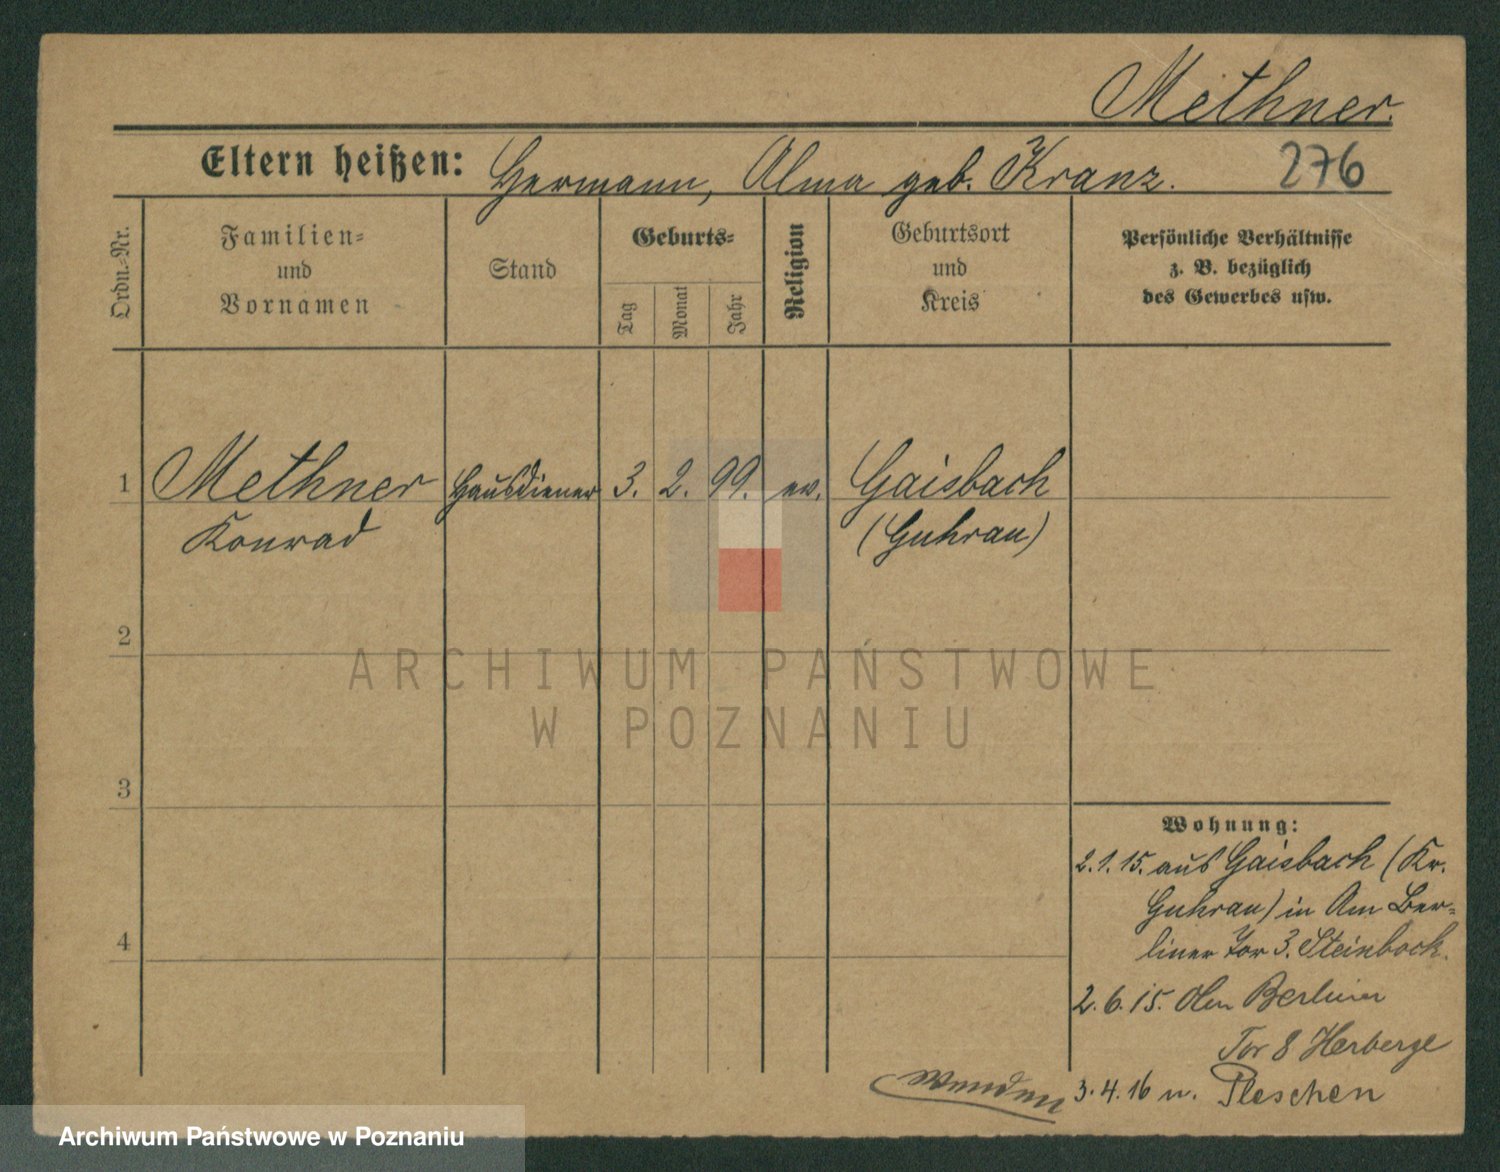 Methner.
Eltern heißen: Hermann, Alma geb. Kranz. 276
Ordn.-Nr.
Familien-
und
Vornamen
Stand
Geburts-
Tag
Monat
Jahr
Religion
Geburtsort
und
Kreis
Persönliche Verhältnisse
z. B. bezüglich
des Gewerbes usw.
1 Methner Hausdiener 3. 2. 99. ev. Gaisbach
Konrad (Guhrau)
2
ARCHIWUM PAŃSTWOWE
W POZNANIU
3
Wohnung:
2.1.15. aus Gaisbach (Kr.
Guhrau) in Am Ber-
liner Tor 3. Steinbock.
4
2.6.15. Am Berliner
Tor 8 Herberge
3.4.16 n. Pleschen
Archiwum Państwowe w Poznaniu